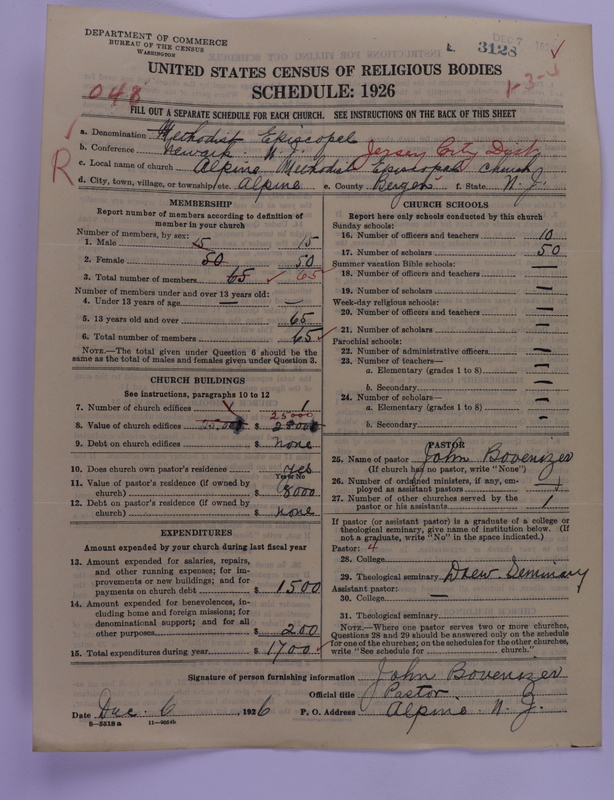 DEPARTMENT OF COMMERCE
BUREAU OF THE CENSUS
WASHINGTON
DEC 7
3128
UNITED STATES CENSUS OF RELIGIOUS BODIES
SCHEDULE: 1926
048
1-3-
FILL OUT A SEPARATE SCHEDULE FOR EACH CHURCH. SEE INSTRUCTIONS ON THE BACK OF THIS SHEET
R
a. Denomination Methodist Episcopal
b. Conference Newark N. J. Jersey City Dist
c. Local name of church Alpine Methodist Episcopal Church
d. City, town, village, or township, etc. Alpine e. County Bergen f. State N. J.
MEMBERSHIP
Report number of members according to definition of
member in your church
Number of members, by sex:
1. Male 15 15
2. Female 50 50
3. Total number of members 65 65
Number of members under and over 13 years old:
4. Under 13 years of age — —
5. 13 years old and over 65
6. Total number of members 65
NOTE.—The total given under Question 6 should be the
same as the total of males and females given under Question 3.
CHURCH BUILDINGS
See instructions, paragraphs 10 to 12
7. Number of church edifices 1
25000
8. Value of church edifices $
9. Debt on church edifices $ None
10. Does church own pastor's residence yes
Yes or No
11. Value of pastor's residence (if owned by
church) $ 8000
12. Debt on pastor's residence (if owned by
church) $ none
EXPENDITURES
Amount expended by your church during last fiscal year
13. Amount expended for salaries, repairs,
and other running expenses; for im-
provements or new buildings; and for
payments on church debt $ 1500
14. Amount expended for benevolences, in-
cluding home and foreign missions; for
denominational support; and for all
other purposes $ 200
15. Total expenditures during year $ 1700
CHURCH SCHOOLS
Report here only schools conducted by this church
Sunday schools:
16. Number of officers and teachers 10
17. Number of scholars 50
Summer vacation Bible schools:
18. Number of officers and teachers —
19. Number of scholars —
Week-day religious schools:
20. Number of officers and teachers —
21. Number of scholars —
Parochial schools:
22. Number of administrative officers —
23. Number of teachers—
a. Elementary (grades 1 to 8) —
b. Secondary —
24. Number of scholars—
a. Elementary (grades 1 to 8) —
b. Secondary -
PASTOR
25. Name of pastor John Bovenizer
(If church has no pastor, write "None")
26. Number of ordained ministers, if any, em-
ployed as assistant pastors
27. Number of other churches served by the
pastor or his assistants 1
If pastor (or assistant pastor) is a graduate of a college or
theological seminary, give name of institution below. (If
not a graduate, write "No" in the space indicated.)
Pastor: 4
28. College
29. Theological seminary Drew Seminary
Assistant pastor:
30. College —
31. Theological seminary
NOTE.—Where one pastor serves two or more churches,
Questions 28 and 29 should be answered only on the schedule
for one of the churches; on the schedules for the other churches,
write "See schedule for church."
Signature of person furnishing information John Bovenizer
Official title Pastor
Date Dec. 6, 1926 P. O. Address Alpine N. J.
8—5518 a 11—9054b